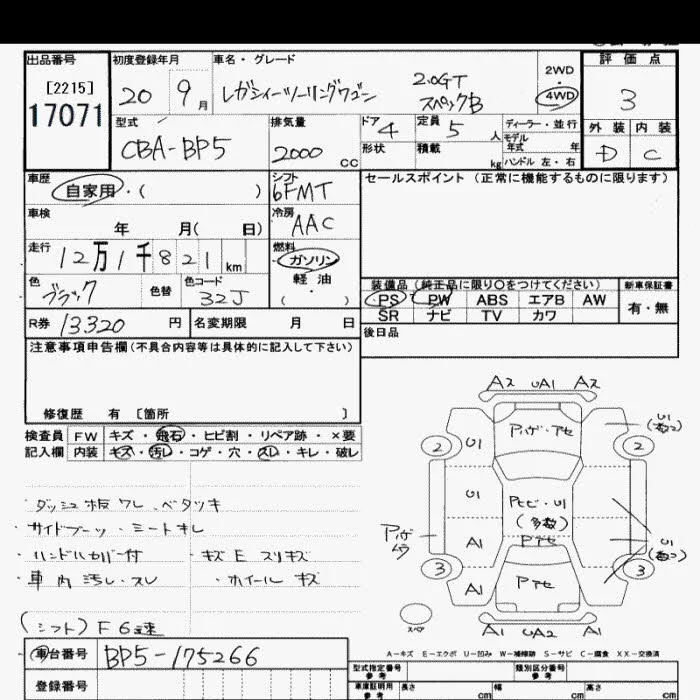 出品番号 初度登録年月 車名・グレード 評価点
[2215] 17071
20 9月 レガシィツーリングワゴン 2.0GT スペックB 2WD・4WD 3
型式 排気量 ドア 定員 ディーラー・並行 外装 内装
CBA-BP5 2000cc 4 5人 モデル年式 年 D C
形状 積載 kg ハンドル 左・右
車歴 シフト セールスポイント(正常に機能するものに限ります)
自家用・( ) 6FMT
車検 冷房
年 月( 日) AAC
走行 燃料
12万1千821km ガソリン
軽油・( )
色 色替 色コード
ブラック 32J
装備品(純正品に限り○をつけてください) 新車保証書
PS PW ABS エアB AW 有・無
SR ナビ TV カワ
R券 13320円 名変期限 月 日 後日品
注意事項申告欄(不具合内容等は具体的に記入して下さい)
修復歴 有 [箇所 ]
検査員 FW キズ・飛石・ヒビ割・リペア跡・×要
記入欄 内装 キズ・汚レ・コゲ・穴・スレ・キレ・破レ
A2 UA1 A2
Pハゲ・アセ
2 U1 U1 2
U1 Pヒビ・U1
(多数)
Pハゲ A1 Pアセ U1
3 A1 Pアセ 3
スペア A1 UA2 A1
・ダッシュ板ワレ・ベタツキ
・サイドブーツ・シートキレ
・ハンドルカバー付 ・キズE スリキズ
・車内汚レ・スレ ・ホイールキズ
(シフト) F6速
A-キズ E-エクボ U-凹み W-補修跡 S-サビ C-腐食 XX-交換済
車台番号 BP5-175266
型式指定番号 参考 類別区分番号 参考
登録番号
車庫証明用 参考 長さ cm 幅 cm 高さ cm